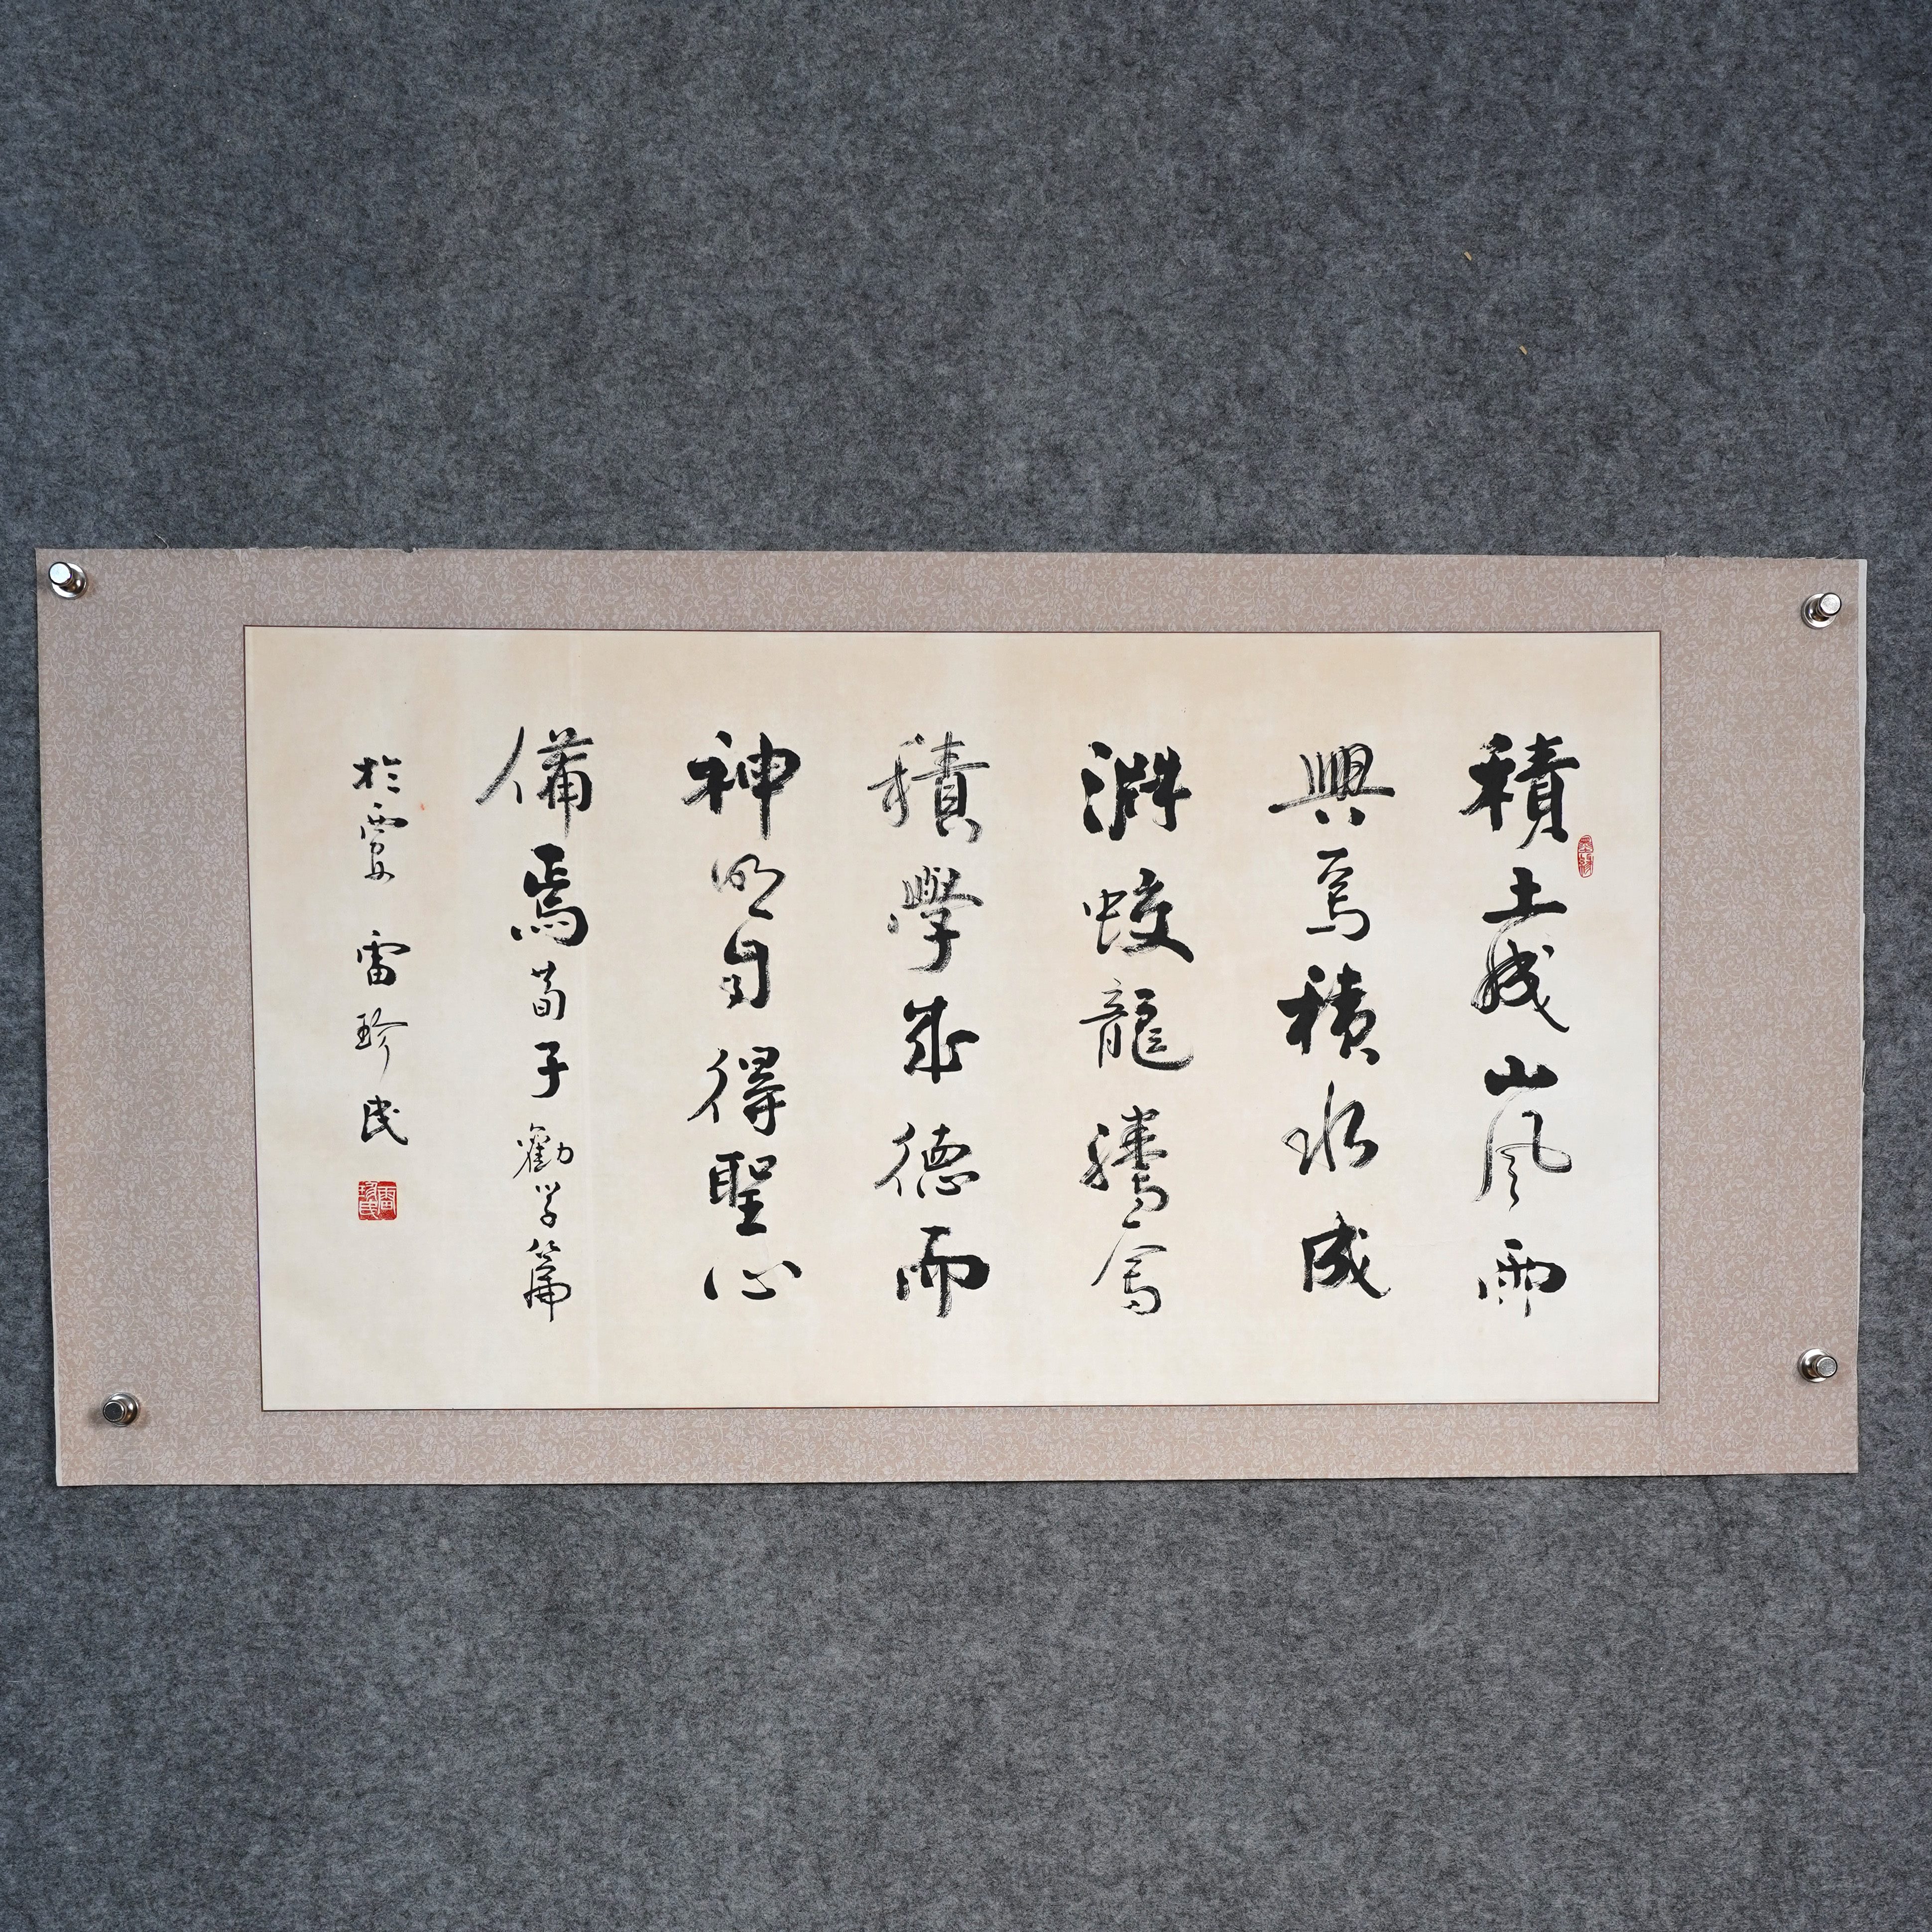 積土成山風雨
興焉積水成
淵蛟龍騰焉
積學成德而
神明自得聖心
備焉荀子勸学篇
於西安 雷珍民
雷珍民